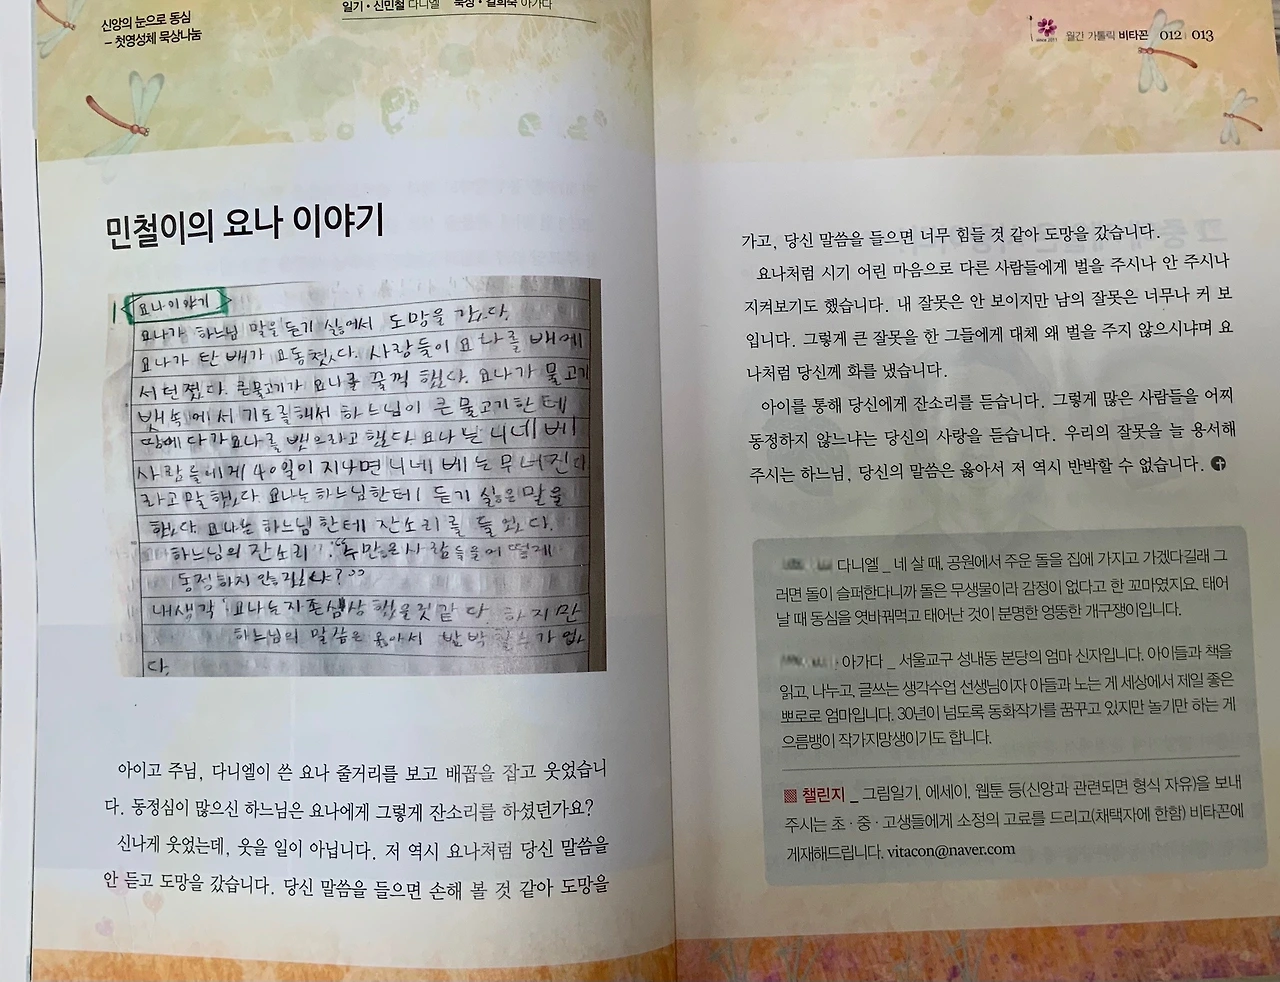 신앙의 눈으로 동심
– 첫영성체 묵상나눔
일기 • 신민철 다니엘 묵상 • 길희숙 아가다
민철이의 요나 이야기
요나이야기
요나가 하느님 말을 듣기 싫어서 도망을 갔다.
요나가 탄 배가 요동쳤다. 사람들이 요나를 배에
서 던졌다. 큰물고기가 요나를 꿀꺽 했다. 요나가 물고기
뱃속에서 기도를해서 하느님이 큰 물고기한테
땅에다가 요나를 뱉으라고 했다. 요나는 니네베
사람들에게 40일이 지나면 니네베는 무너진다
라고 말했다. 요나는 하느님한테 듣기 싫은 말을
했다. 요나는 하느님한테 잔소리를 들었다.
하느님의 잔소리 : "수만은 사람들을 어떻게
동정하지 안을 수 있냐?"
내생각: 요나는 자존심상했을것같다. 하지만
하느님의 말씀은 옳아서 반박할수가 없
다.
아이고 주님, 다니엘이 쓴 요나 줄거리를 보고 배꼽을 잡고 웃었습니
다. 동정심이 많으신 하느님은 요나에게 그렇게 잔소리를 하셨던가요?
신나게 웃었는데, 웃을 일이 아닙니다. 저 역시 요나처럼 당신 말씀을
안 듣고 도망을 갔습니다. 당신 말씀을 들으면 손해 볼 것 같아 도망을
since 2011
월간 가톨릭 비타꼰 012 | 013
가고, 당신 말씀을 들으면 너무 힘들 것 같아 도망을 갔습니다.
요나처럼 시기 어린 마음으로 다른 사람들에게 벌을 주시나 안 주시나
지켜보기도 했습니다. 내 잘못은 안 보이지만 남의 잘못은 너무나 커 보
입니다. 그렇게 큰 잘못을 한 그들에게 대체 왜 벌을 주지 않으시냐며 요
나처럼 당신께 화를 냈습니다.
아이를 통해 당신에게 잔소리를 듣습니다. 그렇게 많은 사람들을 어찌
동정하지 않느냐는 당신의 사랑을 듣습니다. 우리의 잘못을 늘 용서해
주시는 하느님, 당신의 말씀은 옳아서 저 역시 반박할 수 없습니다.
다니엘 _ 네 살 때, 공원에서 주운 돌을 집에 가지고 가겠다길래 그
러면 돌이 슬퍼한다니까 돌은 무생물이라 감정이 없다고 한 꼬마였지요. 태어
날 때 동심을 엿바꿔먹고 태어난 것이 분명한 엉뚱한 개구쟁이입니다.
아가다 _ 서울교구 성내동 본당의 엄마 신자입니다. 아이들과 책을
읽고, 나누고, 글쓰는 생각수업 선생님이자 아들과 노는 게 세상에서 제일 좋은
뽀로로 엄마입니다. 30년이 넘도록 동화작가를 꿈꾸고 있지만 놀기만 하는 게
으름뱅이 작가지망생이기도 합니다.
챌린지 _ 그림일기, 에세이, 웹툰 등(신앙과 관련되면 형식 자유)을 보내
주시는 초 · 중 · 고생들에게 소정의 고료를 드리고(채택자에 한함) 비타꼰에
게재해드립니다. vitacon@naver.com